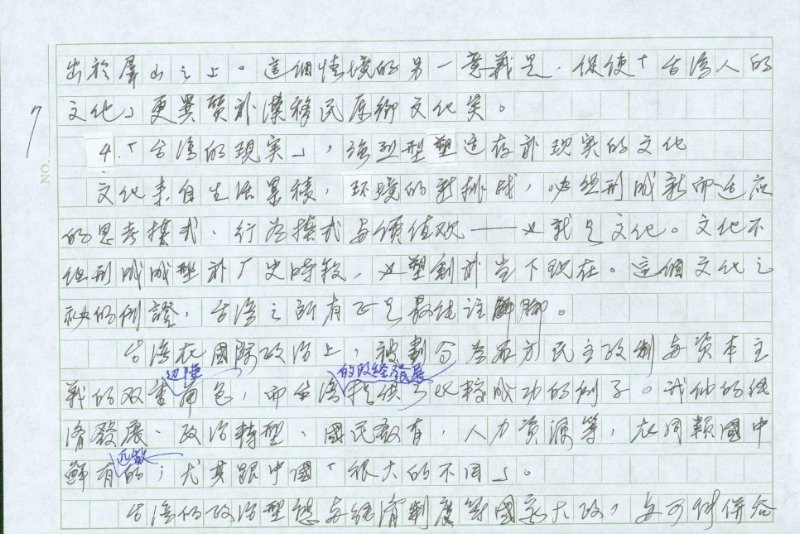 出於唐山之上。這個情境的另一意義是,促使「台灣人的
文化」更異質於漢移民原鄉文化矣。
4.「台灣的現实」,強烈型塑適存於現実的文化
文化来自生活累積,环境的新挑战,必然形成新而适应
的思考模式、行為模式与價值观——这就是文化。文化不
但形成成型於厂史時段,也塑創於当下现在。這個文化之
的例證,台湾之所有正是最佳註解脚。
台湾在國际政治上,被劃分為西方民主政制与資本主
義的双重边陲角色,而台湾提供了的政經發展比較成功的例子。我們的经
濟發展、政治轉型、國民教育、人力資源等,在同類國中
鮮有匹敵的;尤其跟中國「很大的不同」。
台湾的政治型態与经濟制度等國家大政,与可供併合
7
NO.